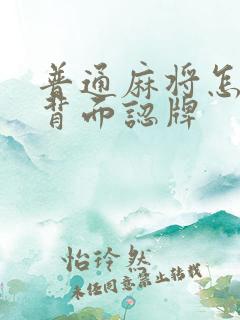 普通麻将怎
背而認牌
怡玲然
未任同意禁止转载